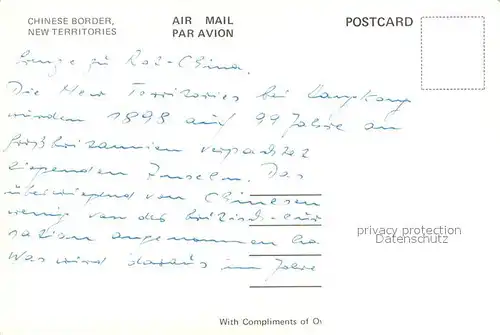 CHINESE BORDER,
NEW TERRITORIES
AIR MAIL
PAR AVION
POSTCARD
Grenze zu Rot-China.
Die New Territories bei Hongkong
wurden 1898 auf 99 Jahre an
Großbritannien verpachtet
liegenden Inseln. Das
überwiegend von Chinesen
wenig von der britisch-
angenommen ha
Was wird daraus im Jahre
privacy protection
Datenschutz
With Compliments of Ov